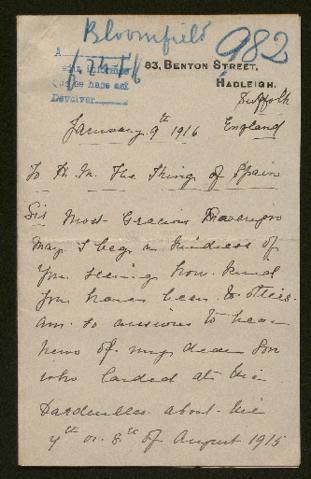 Bloomfield
982
A
83, BENTON STREET,
HADLEIGH.
Devolver
Suffolk
January 9th 1916 England
To H. M. The King of Spain
Sir Most Gracious Sovereign
May I beg a kindness of
you seeing how kind
you have been to others.
am so anxious to hear
news of my dear Son
who landed at the
Dardenelles about the
7th or 8th of August 1915